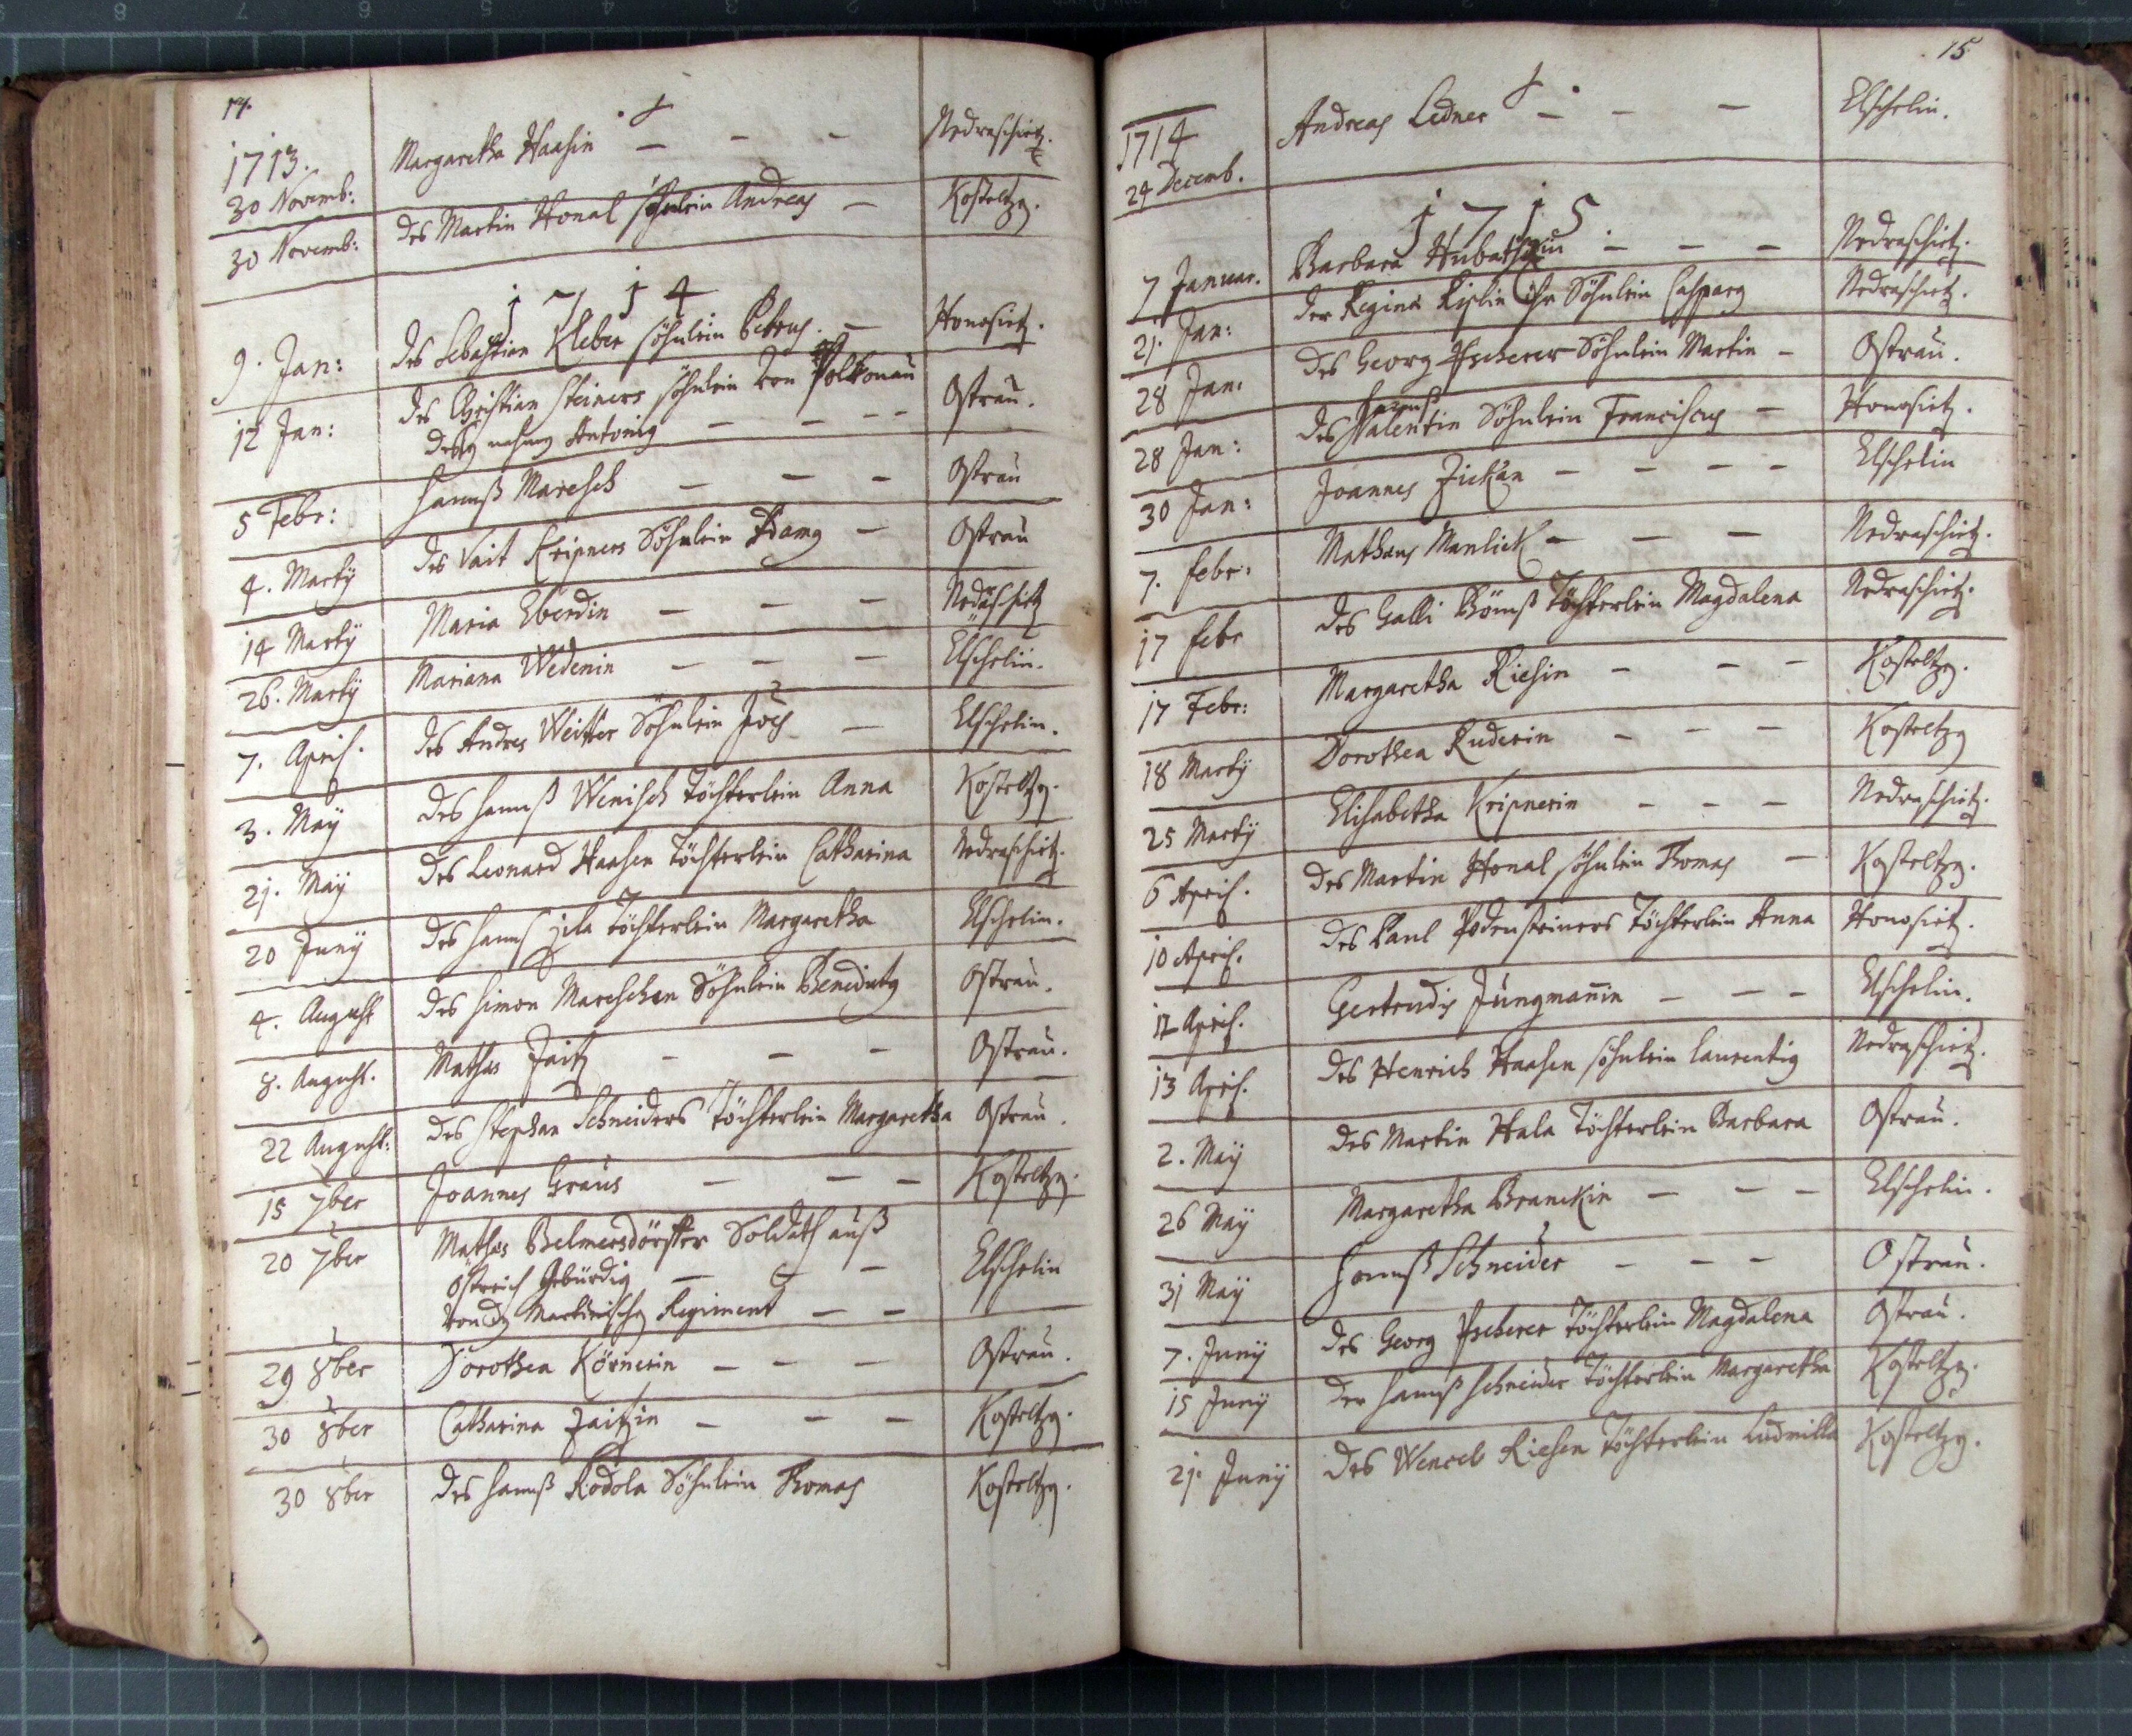 14.
1713.
30 Novemb: Margaretha Haasin — — — Nedraschietz.
30 Novemb: des Martin Honal söhnlein Andreas — Kosteltzen.
1714
9. Jan: des Sebastian Kleber söhnlein Petrus. — Honositz.
12 Jan: des Christian Steiners söhnlein von Polkonau Ostrau.
nahmens Antonius — — —
5 Febr: Hannß Maresch — — — Ostrau
4. Martÿ des Vait Kripners Söhnlein Adamus — Ostrau
14 Martÿ Maria Eberdin — — —
26. Martÿ Mariana Wedenin — — — Elschelin.
7. April. des Andres Weitter Söhnlein — Elschelin.
3. Maÿ des Hannß Wenisch Töchterlein Anna Kosteltzen.
21. Maÿ des Leonard Haasen Töchterlein Catharina Nedraschietz.
20 Junÿ des Hannß Töchterlein Margaretha Elschelin.
4. August des Simon Mareschen Söhnlein Benedictus Ostrau.
8. August. Mathes Zaitz — — — Ostrau.
22 August: des Stephan Schneiders Töchterlein Margaretha Ostrau.
15 7ber Joannes Graus — — — Kosteltzen.
20 7ber Mathes Belmersdörffer Soldath auß
Östreich Gebürdig — — Elschelin
von dem Martinischen Regiment — —
29 8ber Dorothea Körnerin — — — Ostrau.
30 8ber Catharina Zaitzin — — — Kosteltzen.
30 8ber des Hannß Rodola Söhnlein Thomas Kosteltzen.
15
1714
24 Decemb. Andreas Ledner — — — Elschelin.
1715
7 Januar. Barbara — — — Nedraschietz.
21. Jan: der Regina ihr Söhnlein Casparus Nedraschietz.
28 Jan: des Georg Pscherer Söhnlein Martin — Ostrau.
28 Jan: des Valentin Söhnlein Franciscus — Honositz.
30 Jan: Joannes Zickan — — — — Elschelin
7. febr: Mathaus Manlick — — — Nedraschietz.
17 febr des Galli Bömß Töchterlein Magdalena Nedraschietz.
17 Febr: Margaretha Riesin — — — Kosteltzen.
18 Martÿ Dorothea Ruderin — — — Kosteltzen
25 Martÿ Elisabetha Kripnerin — — — Nedraschietz.
6 April. des Martin Honal söhnlein Thomas — Kosteltzen.
10 April. des Paul Podensteiners Töchterlein Anna Honositz.
12 April. Gertrudis Jungmanin — — — Elschelin.
13 April. des Henrich Haasen söhnlein Laurentius Nedraschietz.
2. Maÿ des Martin Hala Töchterlein Barbara Ostrau.
26 Maÿ Margaretha Branckin — — — Elschelin.
31 Maÿ Hannß Schneider — — — Ostrau.
7. Junÿ des Georg Pscherer Töchterlein Magdalena Ostrau.
15 Junÿ der Hannß Schneider Töchterlein Margaretha Kosteltzen.
21. Junÿ des Wencel Riesen Töchterlein Ludmilla Kosteltzen.